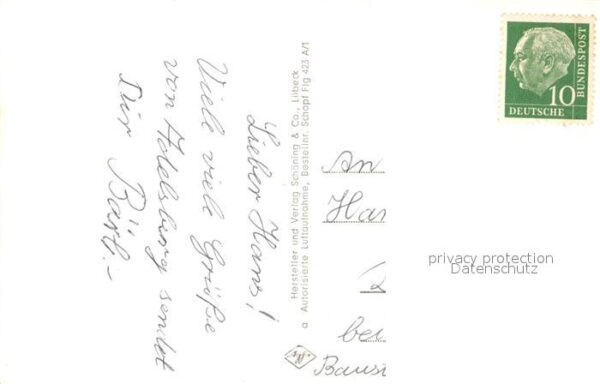 Lieber Hans!
Viele viele Grüße
von Adelsburg sendet
Dir Bärb.-
Hersteller und Verlag Schöning & Co., Lübeck
a Autorisierte Luftaufnahme, Bestellnr. Schopf Flg 423 A/1
An
Han
bei
Baus
10
DEUTSCHE
BUNDESPOST
privacy protection
Datenschutz